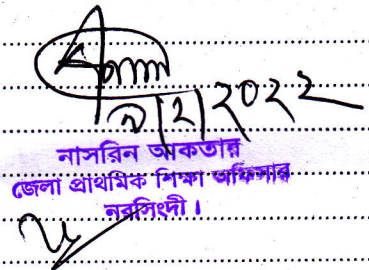 ৯/২/২০২২
নাসরিন আকতার
জেলা প্রাথমিক শিক্ষা অফিসার
নরসিংদী।